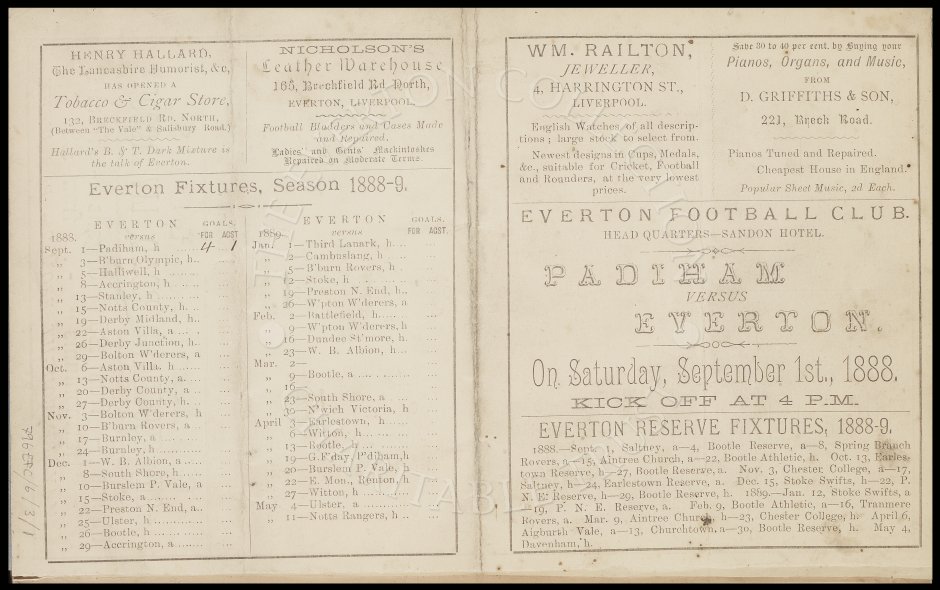 HENRY HALLARD,
The Lancashire Humorist, &c,
HAS OPENED A
Tobacco & Cigar Store,
132, BRECKFIELD RD. NORTH,
(Between "The Vale" & Salisbury Road.)
Hallard's B. & T. Dark Mixture is
the talk of Everton.
NICHOLSON'S
Leather Warehouse
165, Breckfield Rd. North,
EVERTON, LIVERPOOL.
Football Bladders and Cases Made
and Repaired.
Ladies' and Gents' Mackintoshes
Repaired on Moderate Terms
Everton Fixtures, Season 1888-9.
EVERTON GOALS.
1888. versus FOR AGST
Sept. 1—Padiham, h 4 1
„ 3—B'burn Olympic, h..
„ 5—Halliwell, h
„ 8—Accrington, h
„ 13—Stanley, h
„ 15—Notts County, h
„ 19—Derby Midland, h..
„ 22—Aston Villa, a
„ 26—Derby Junction, h..
„ 29—Bolton W'derers, a
Oct. 6—Aston Villa, h
„ 13—Notts County, a.
„ 20—Derby County, a
„ 27—Derby County, h.
Nov. 3—Bolton W'derers, h
„ 10—B'burn Rovers, a
„ 17—Burnley, a
„ 24—Burnley, h
Dec. 1—W. B. Albion, a
„ 8—South Shore, h
„ 10—Burslem P. Vale, a
„ 15—Stoke, a
„ 22—Preston N. End, a..
„ 25—Ulster, h
„ 26—Bootle, h
„ 29—Accrington, a
EVERTON GOALS.
1889. versus FOR AGST.
Jan. 1—Third Lanark, h
„ 2—Cambuslang, h
„ 5—B'burn Rovers, h
„ 12—Stoke, h
„ 19—Preston N. End, h..
„ 26—W'pton W'derers, a
Feb. 2—Battlefield, h
„ 9—W'pton W'derers, h
„ 16—Dundee St'more, h.
„ 23—W. B. Albion, h
Mar. 2—
„ 9—Bootle, a
„ 16—
„ 23—South Shore, a
„ 30—N'wich Victoria, h
April 3—Earlestown, h
„ 6—Witton, h
„ 13—Bootle, h
„ 19—G.F'day, P'diham, h
„ 20—Burslem P. Vale, h
„ 22—E. Mon., Renton, h
„ 27—Witton, h
May 4—Ulster, a
„ 11—Notts Rangers, h
WM. RAILTON,
JEWELLER,
4, HARRINGTON ST.,
LIVERPOOL.
English Watches of all descrip-
tions; large stock to select from.
Newest designs in Cups, Medals,
&c., suitable for Cricket, Football
and Rounders, at the very lowest
prices.
Save 30 to 40 per cent. by Buying your
Pianos, Organs, and Music,
FROM
D. GRIFFITHS & SON,
221, Breck Road.
Pianos Tuned and Repaired.
Cheapest House in England.
Popular Sheet Music, 2d Each.
EVERTON FOOTBALL CLUB.
HEAD QUARTERS—SANDON HOTEL.
PADIHAM
VERSUS
EVERTON.
On Saturday, September 1st., 1888.
KICK OFF AT 4 P.M.
EVERTON RESERVE FIXTURES, 1888-9.
1888.—Sept. 1, Saltney, a—4, Bootle Reserve, a—8, Spring Branch
Rovers, a—15, Aintree Church, a—22, Bootle Athletic, h. Oct. 13, Earles-
town Reserve, h—27, Bootle Reserve, a. Nov. 3, Chester College, a—17,
Saltney, h—24, Earlestown Reserve, a. Dec. 15, Stoke Swifts, h—22, P.
N. E. Reserve, h—29, Bootle Reserve, h. 1889.—Jan. 12, Stoke Swifts, a
—19, P. N. E. Reserve, a. Feb. 9, Bootle Athletic, a—16, Tranmere
Rovers, a. Mar. 9, Aintree Church, h—23, Chester College, h. April 6,
Aigburth Vale, a—13, Churchtown, a—30, Bootle Reserve, h. May 4,
Davenham, h.